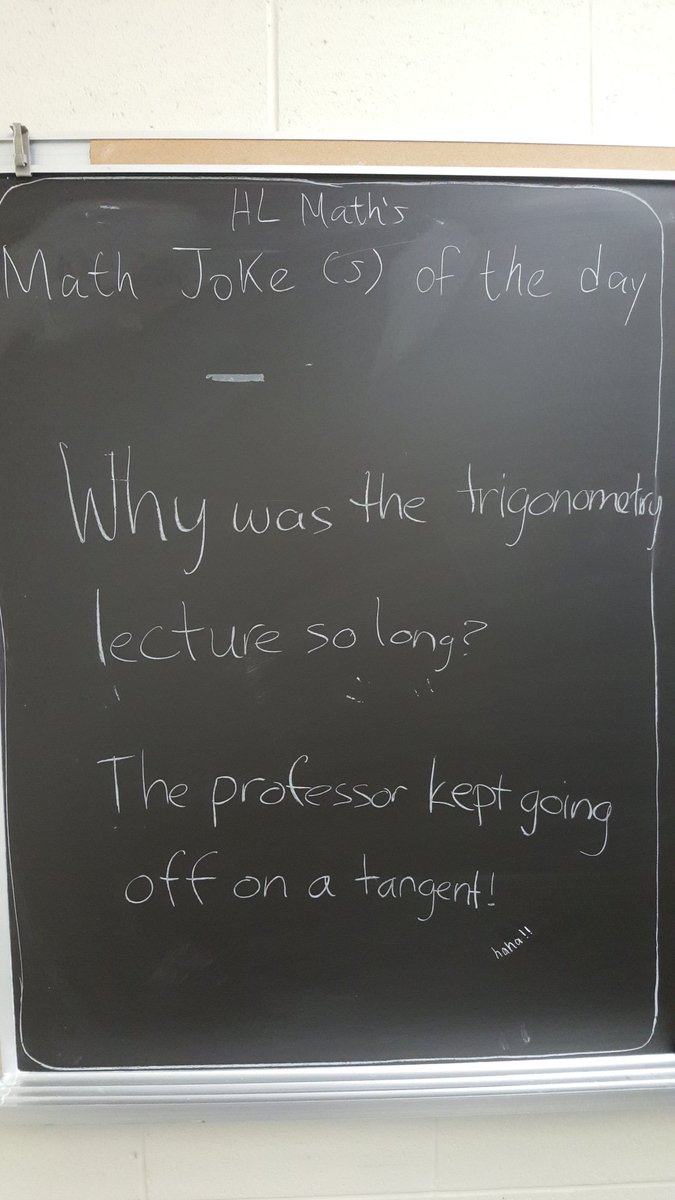 HL Math's
Math Joke (s) of the day
Why was the trigonometry
lecture so long?
The professor kept going
off on a tangent!
haha!!